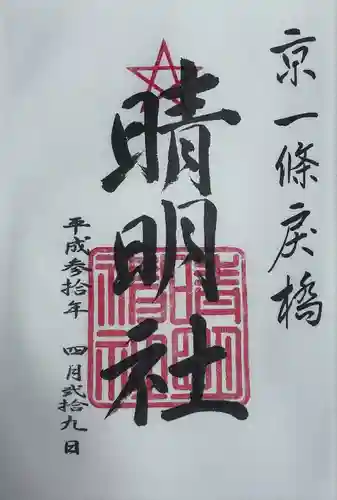 京一條戻橋
晴明社
平成参拾年 四月弐拾九日
晴明
神社